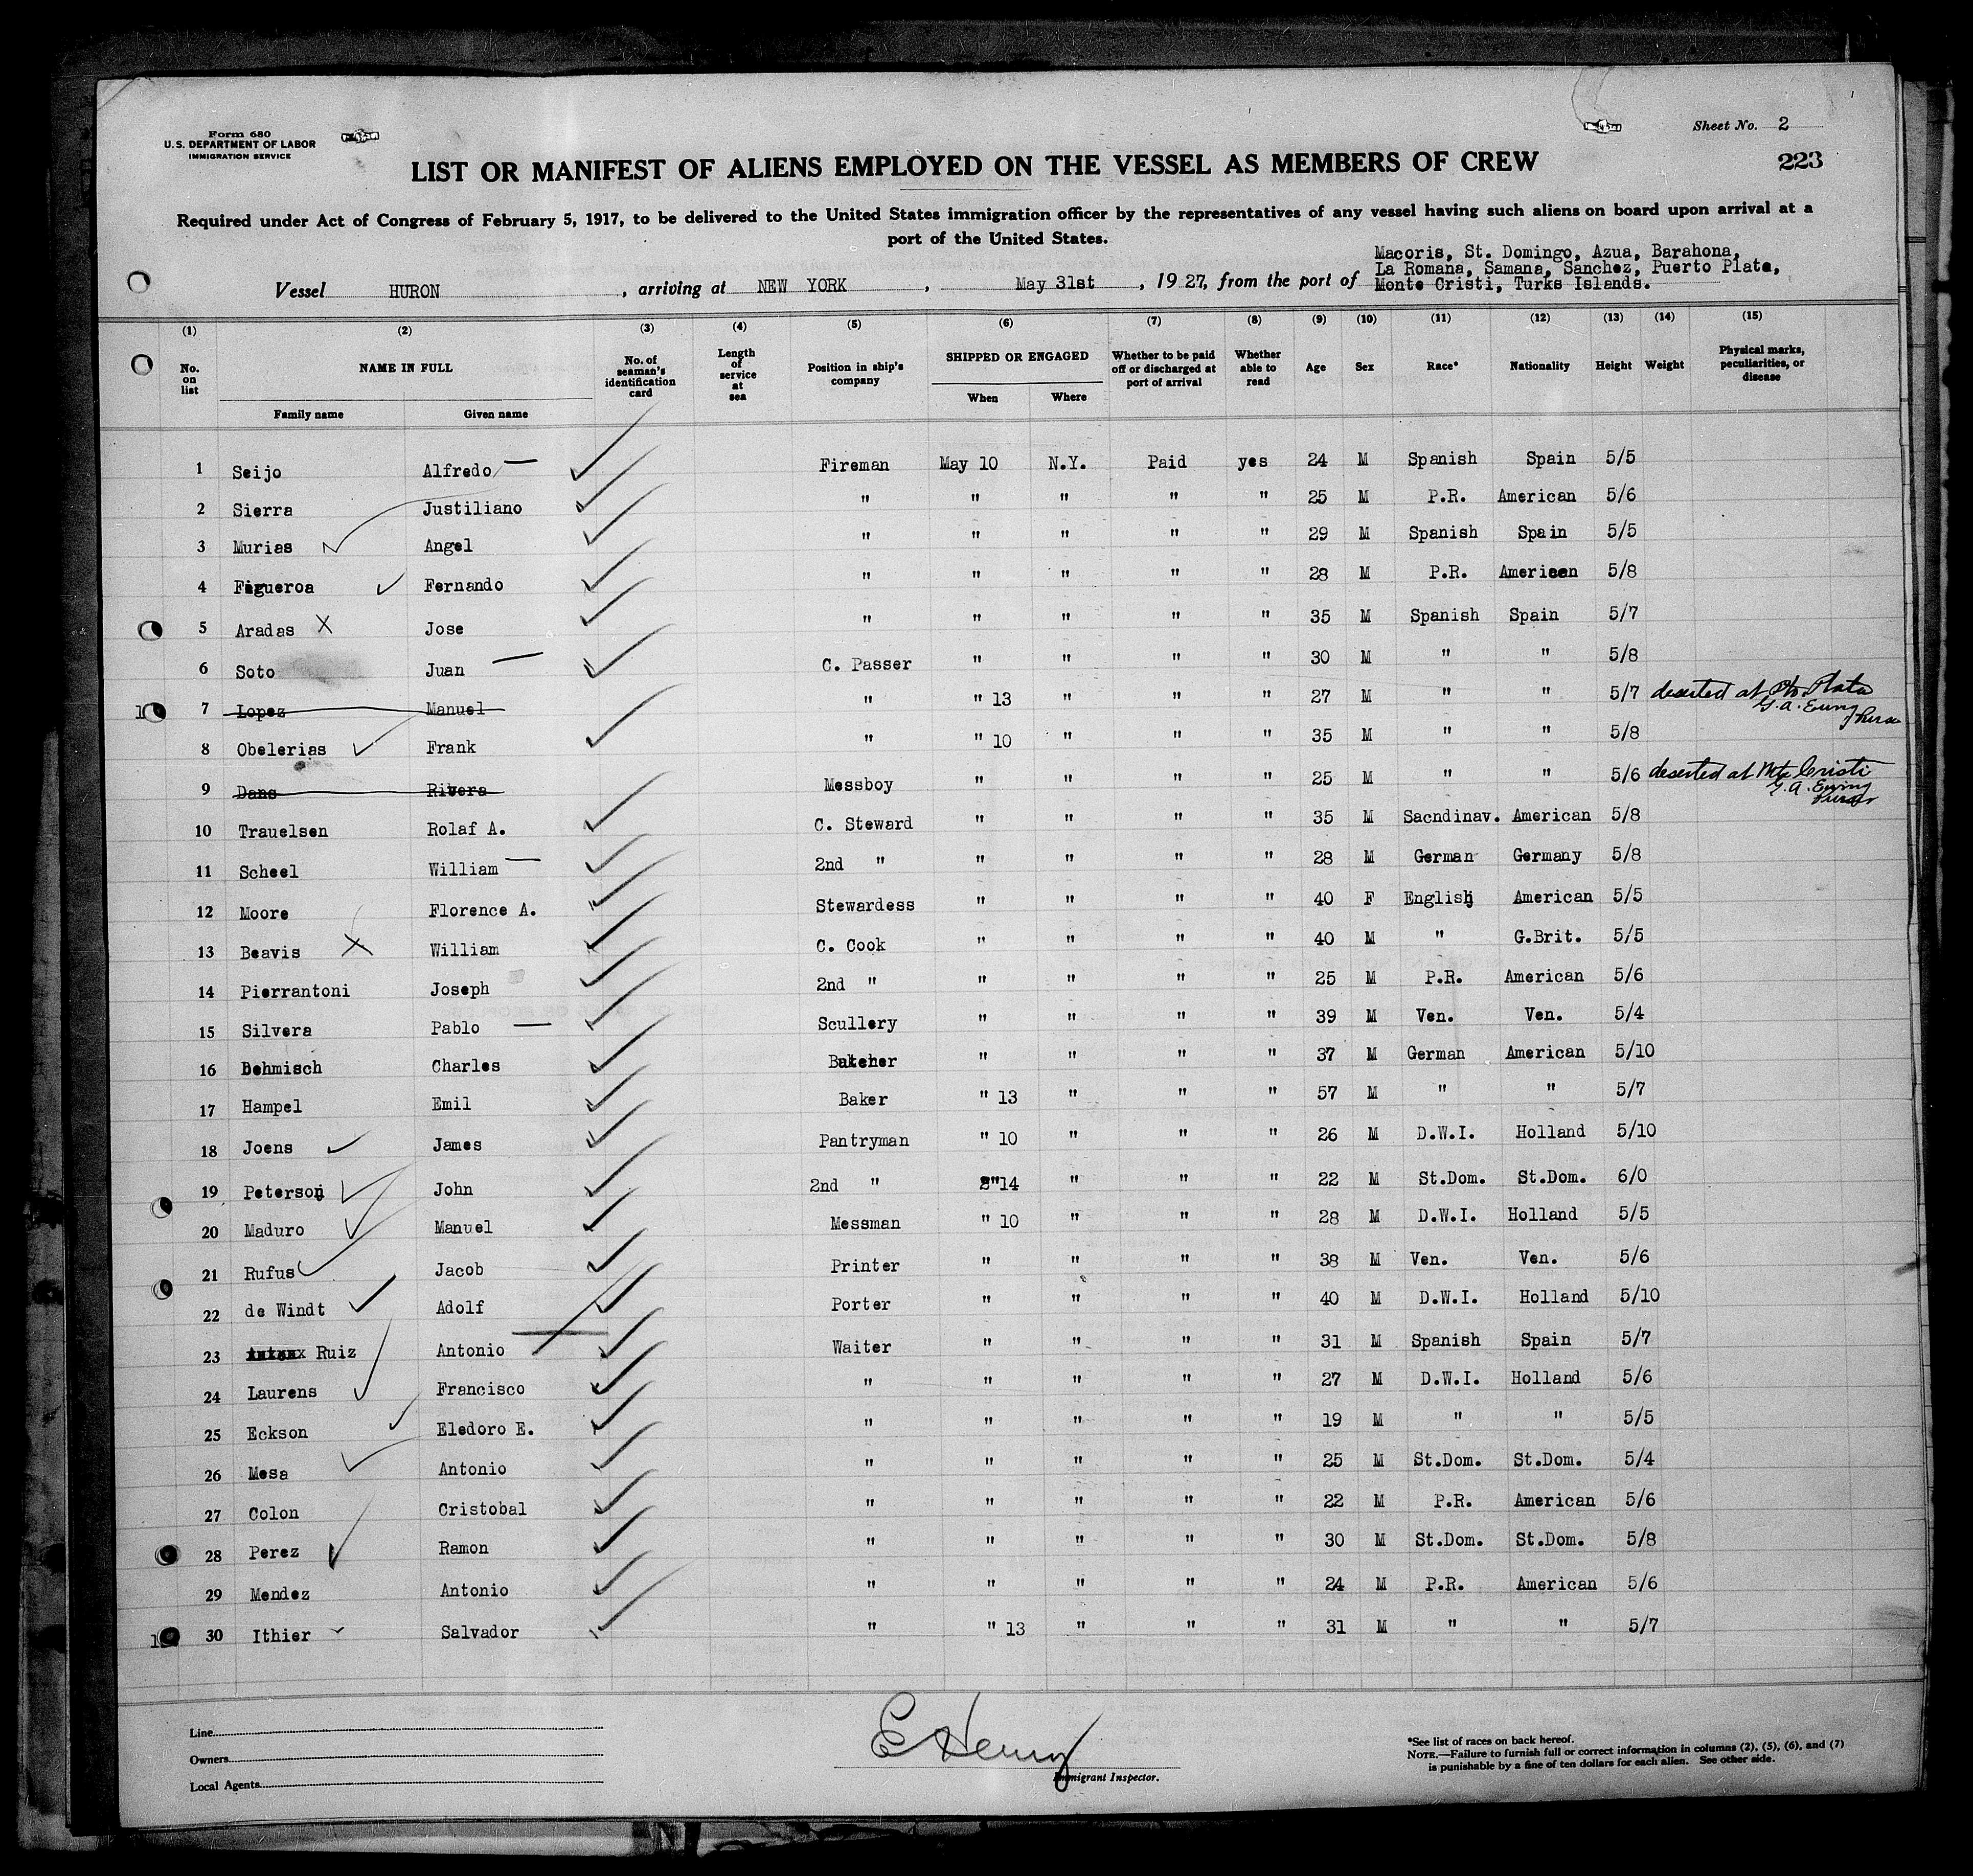 Form 680
U.S. DEPARTMENT OF LABOR
IMMIGRATION SERVICE
Sheet No. 2
223
LIST OR MANIFEST OF ALIENS EMPLOYED ON THE VESSEL AS MEMBERS OF CREW
Required under Act of Congress of February 5, 1917, to be delivered to the United States immigration officer by the representatives of any vessel having such aliens on board upon arrival at a
port of the United States.
Macoris, St. Domingo, Azua, Barahona,
La Romana, Samana, Sanchez, Puerto Plata,
Vessel HURON, arriving at NEW YORK, May 31st, 1927, from the port of Monte Cristi, Turks Islands.
(1) (2) (3) (4) (5) (6) (7) (8) (9) (10) (11) (12) (13) (14) (15)
No. on list NAME IN FULL Family name Given name No. of seaman's identification card Length of service at sea Position in ship's company SHIPPED OR ENGAGED When Where Whether to be paid off or discharged at port of arrival Whether able to read Age Sex Race* Nationality Height Weight Physical marks, peculiarities, or disease
1 Seijo Alfredo Fireman May 10 N.Y. Paid yes 24 M Spanish Spain 5/5
2 Sierra Justiliano " " " " " 25 M P.R. American 5/6
3 Murias Angel " " " " " 29 M Spanish Spain 5/5
4 Figueroa Fernando " " " " " 28 M P.R. American 5/8
5 Aradas Jose " " " " " 35 M Spanish Spain 5/7
6 Soto Juan C. Passer " " " " 30 M " " 5/8
7 Lopez Manuel " " 13 " " " 27 M " " 5/7 deserted at Pto Plata G.A. Ewing Purser
8 Obelerias Frank " " 10 " " " 35 M " " 5/8
9 Dans Rivera Messboy " " " " 25 M " " 5/6 deserted at Mte Cristi G.A. Ewing Purser
10 Trauelsen Rolaf A. C. Steward " " " " 35 M Sacndinav. American 5/8
11 Scheel William 2nd " " " " " 28 M German Germany 5/8
12 Moore Florence A. Stewardess " " " " 40 F English American 5/5
13 Beavis William C. Cook " " " " 40 M " G.Brit. 5/5
14 Pierrantoni Joseph 2nd " " " " " 25 M P.R. American 5/6
15 Silvera Pablo Scullery " " " " 39 M Ven. Ven. 5/4
16 Dehmisch Charles " " " " 37 M German American 5/10
17 Hampel Emil Baker " 13 " " " 57 M " " 5/7
18 Joens James Pantryman " 10 " " " 26 M D.W.I. Holland 5/10
19 Peterson John 2nd " " 14 " " " 22 M St.Dom. St.Dom. 6/0
20 Maduro Manuel Messman " 10 " " " 28 M D.W.I. Holland 5/5
21 Rufus Jacob Printer " " " " 38 M Ven. Ven. 5/6
22 de Windt Adolf Porter " " " " 40 M D.W.I. Holland 5/10
23 Ruiz Antonio Waiter " " " " 31 M Spanish Spain 5/7
24 Laurens Francisco " " " " " 27 M D.W.I. Holland 5/6
25 Eckson Eledoro E. " " " " " 19 M " " 5/5
26 Mesa Antonio " " " " " 25 M St.Dom. St.Dom. 5/4
27 Colon Cristobal " " " " " 22 M P.R. American 5/6
28 Perez Ramon " " " " " 30 M St.Dom. St.Dom. 5/8
29 Mendez Antonio " " " " " 24 M P.R. American 5/6
30 Ithier Salvador " " 13 " " " 31 M " " 5/7
Line
Owners
Local Agents
E Henry
Immigrant Inspector.
*See list of races on back hereof.
NOTE.—Failure to furnish full or correct information in columns (2), (5), (6), and (7)
is punishable by a fine of ten dollars for each alien. See other side.